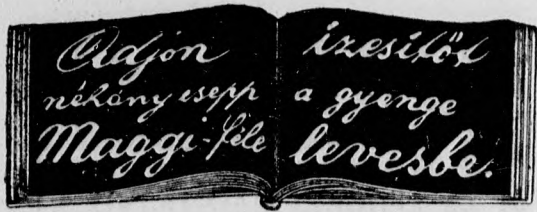 Adjon
néhány csepp
Maggi-féle
izesítőt
a gyenge
levesbe.